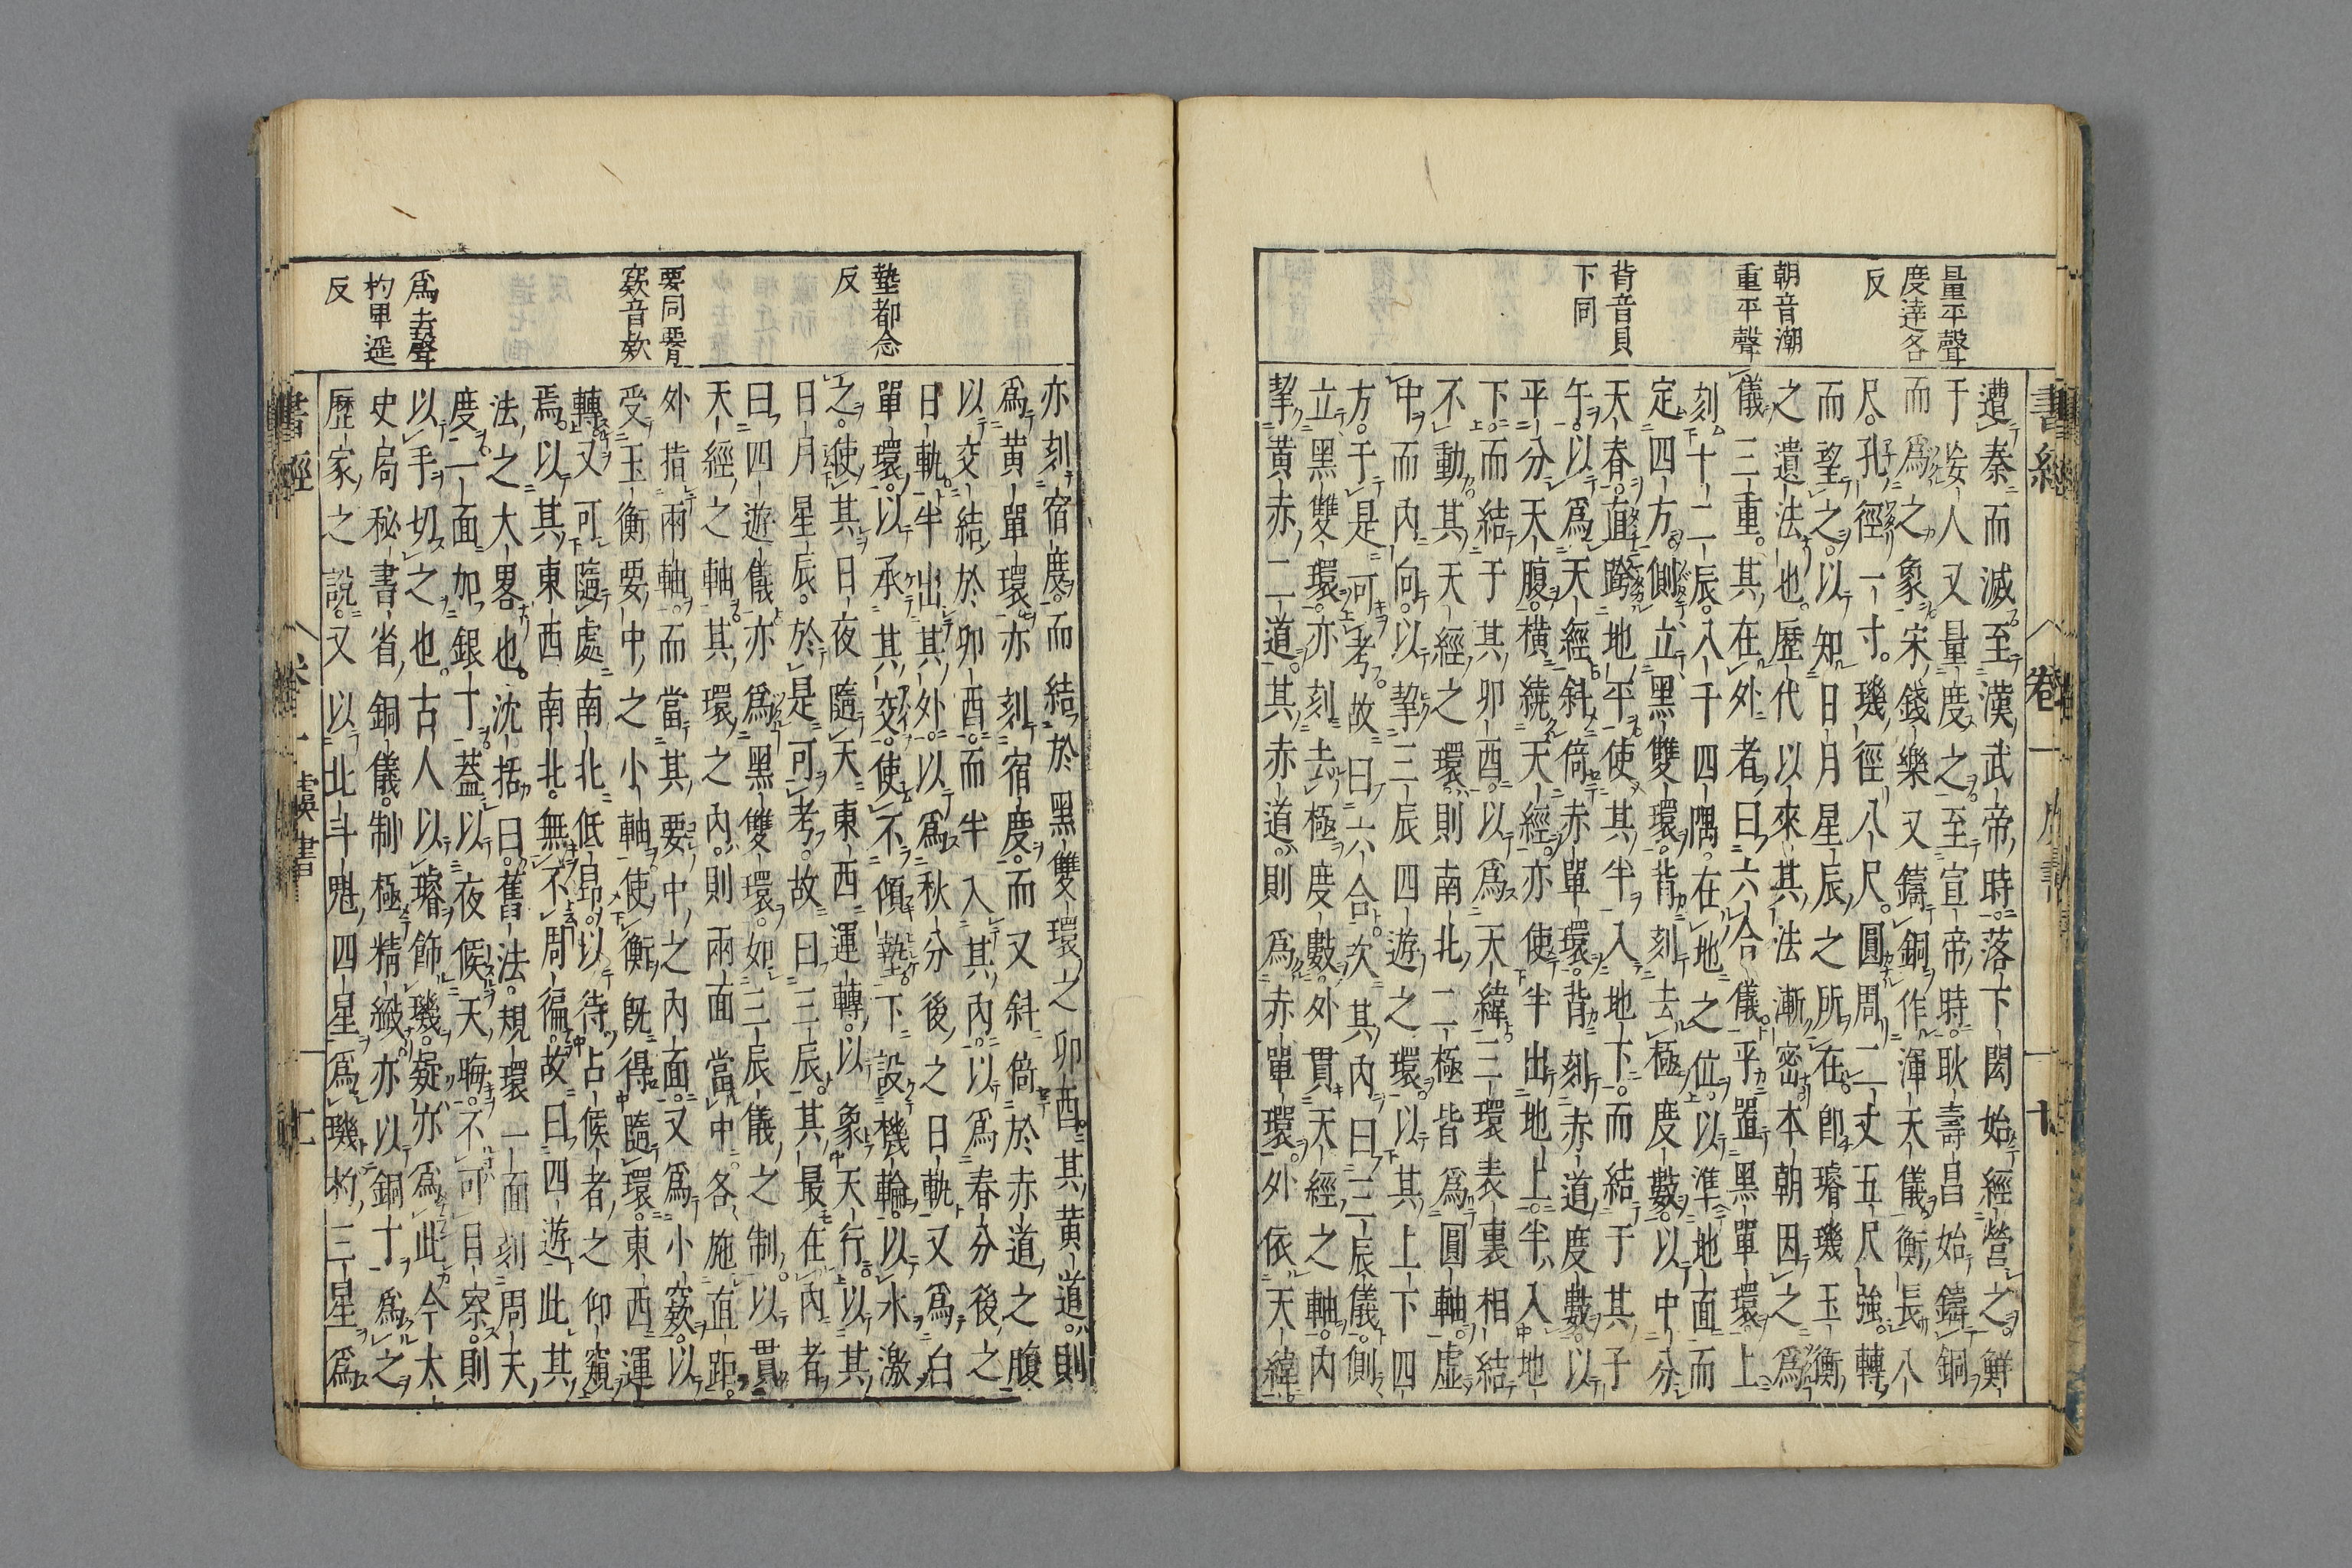 量平聲
度達各
反
朝音潮
重平聲
背音貝
下同
書經 卷一 十
遭秦而滅至漢武帝時落下閎始經營之鮮
于妄人又量度之至宣帝時耿壽昌始鑄銅
而爲之象宋錢樂又鑄銅作渾天儀衡長八
尺孔徑一寸璣徑八尺圓周二丈五尺強轉
而望之以知日月星辰之所在即璿璣玉衡
之遺法也歷代以來其法漸密本朝因之爲
儀三重其在外者曰六合儀平置黑單環上
刻十二辰八千四隅在地之位以準地面而
定四方側立黑雙環背刻去極度數以中分
天春直跨地平使其半入地下而結于其子
午以爲天經斜倚赤單環背刻赤道度數以
平分天腹橫繞天經亦使半出地上半入地
下而結于其卯酉以爲天緯三環表裏相結
不動其天經之環則南北二極皆爲圓軸虛
中而內向以挈三辰四遊之環以其上下四
方于是可考故曰六合次其內曰三辰儀側
立黑雙環亦刻去極度數外貫天經之軸內
挈黃赤二道其赤道則爲赤單環外依天緯
墊都念
反
要同腎
窾音欵
爲去聲
杓甲遥
反
亦刻宿度而結於黑雙環之卯酉其黃道則
爲黃單環亦刻宿度而又斜倚於赤道之腹
以交結於卯酉而半入其內以爲春分後之
日軌半出其外以爲秋分後之日軌又爲白
單環以承其交使不傾墊下設機輪以水激
之使其日夜隨天東西運轉以象天行以其
日月星辰於是可考故曰三辰其最在內者
曰四遊儀亦爲黑雙環如三辰儀之制以貫
天經之軸其環之內則兩面當中各施直距
外指兩軸而當其要中之內面又爲小窾以
受玉衡要中之小軸使衡旣得隨環東西運
轉又可隨處南北低昂以待占候者之仰窺
焉以其東西南北無不周徧故曰四遊此其
法之大畧也沈括曰舊法規環一面刻周天
度一面加銀丁蓋以夜候天晦不可目察則
以手切之也古人以璿飾璣疑亦爲此今太
史局秘書省銅儀制極精緻亦以銅丁爲之
歷家之說又以北斗魁四星爲璣杓三星爲
書經 虞書